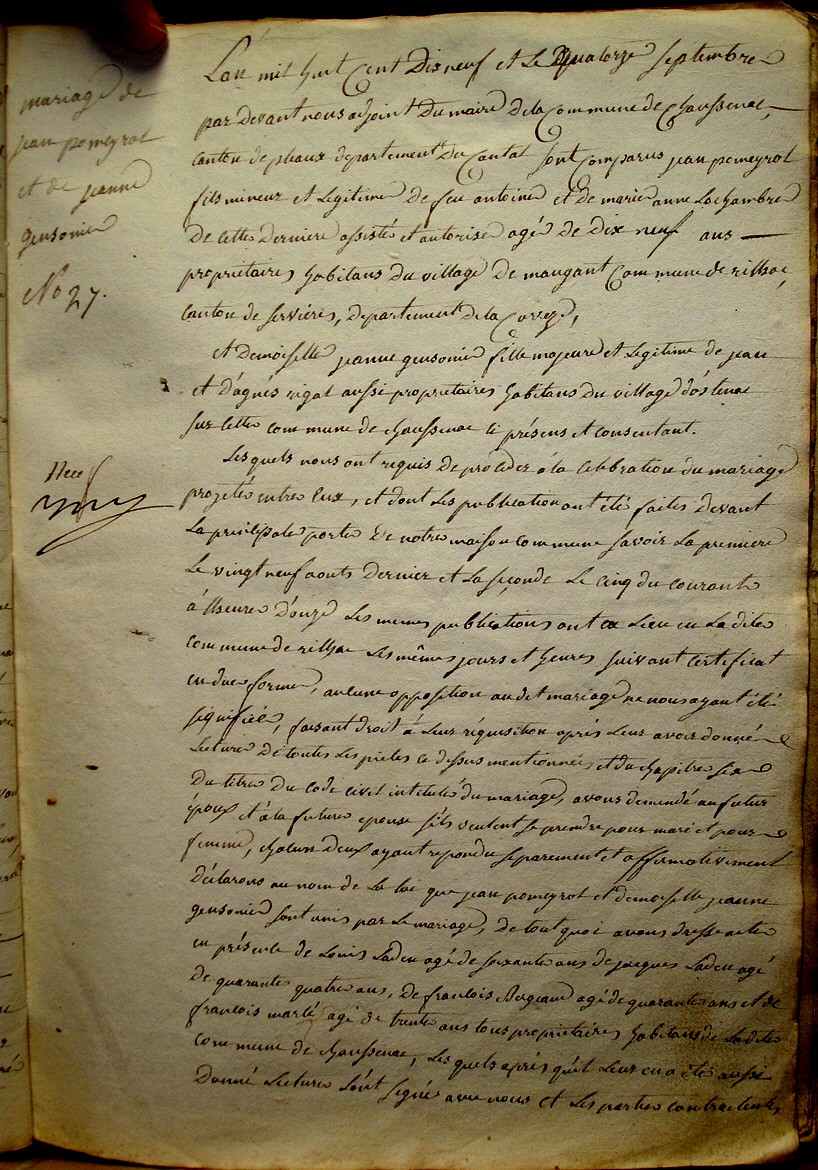 mariage de
jean pomeyrol
et de jeanne
gensonie
No 27.
L'an mil huit cent Dixneuf et Le Quatorze septembre
par Devant nous adjoint Du maire De la Commune de Chaussenac,
canton de pleaux departement Du Cantal sont Comparus jean pomeyrol
fils mineur et Legitime de feu antoine et de marie anne Lachambre
De cette Derniere assisté et autorisé agé De Dix neuf ans
propriétaires habitans Du village De maugant Commune de rilhac,
Canton de servières, departement De la Correze,
et Demoiselle jeanne gensonie fille majeure et Legitime de jean
et D'agnés rigal aussi propriétaires habitans Du village d'ostenac
sur cette commune de chaussenac ci présens et consentant.
Les quels nous ont requis De proceder à la Celebration du mariage
projeté entre Eux, et dont Les publication ont été faites Devant
La principale porte De notre maison commune savoir La premiere
Le vingt neuf aouts Dernier et La seconde Le cinq du courant
à L'heure D'onze Les memes publications ont eu Lieu en La dite
commune de rilhac Les mêmes jours et heures suivant certificat
en due forme, aucune opposition au dit mariage ne nous ayant été
signifiée, faisant droit à Leur réquisition après Leur avoir donné
Lecture De toutes Les pieces ci dessus mentionnées et du chapitre six
Du titre Du code civil intitulé du mariage, avons demandé au futur
époux et à la future epouse s'ils veulent se prendre pour mari et pour
femme, chacun d'eux ayant repondu separement et affirmativement
Déclarons au nom de La loi que jean pomeyrol et demoiselle jeanne
gensonie sont unis par Le mariage, De tout quoi avons dressé acte
en présence de Louis Laden agé de soixante ans de jacques Laden agé
De quarante quatre ans, De francois agé de quarante ans et de
francois marle agé de trente ans tous propriétaires habitans De La dite
commune de chaussenac, Les quels après qu'il Leur en a été aussi
Donné Lecture L'ont signé avec nous et Les parties contractantes